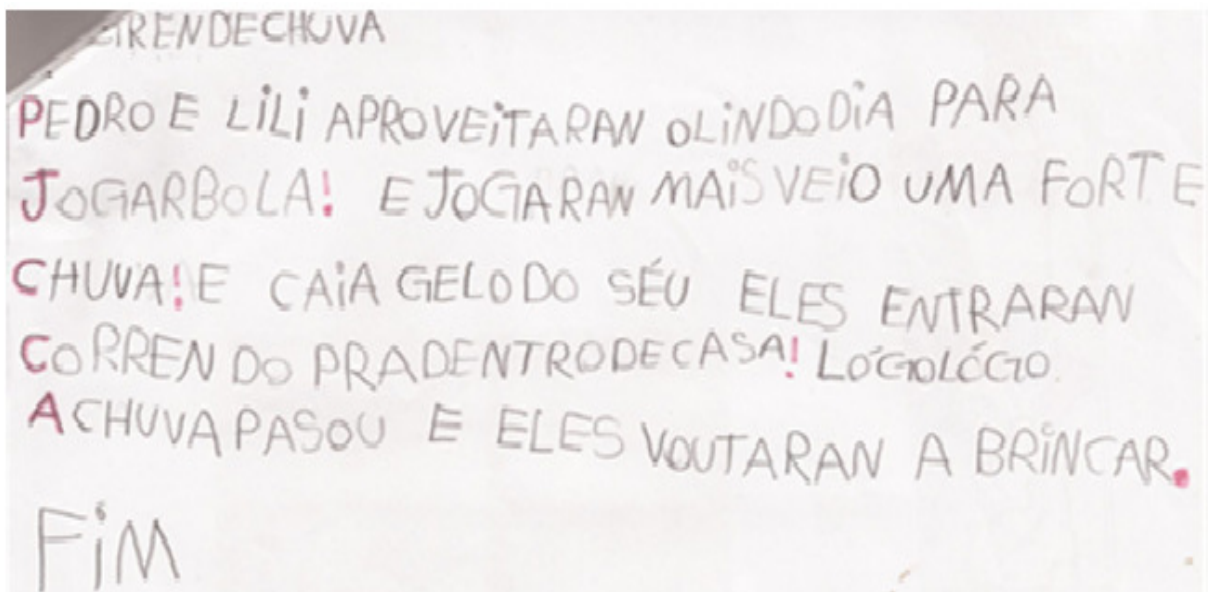 PEDRO E LILI APROVEITARAN OLINDODIA PARA
JOGARBOLA! E JOGARAN MAIS VEIO UMA FORTE
CHUVA! E CAIA GELODO SÉU ELES ENTRARAN
CORRENDO PRADENTRODECASA! LÓGOLÓGO
ACHUVAPASOU E ELES VOUTARAN A BRINCAR.
FIM